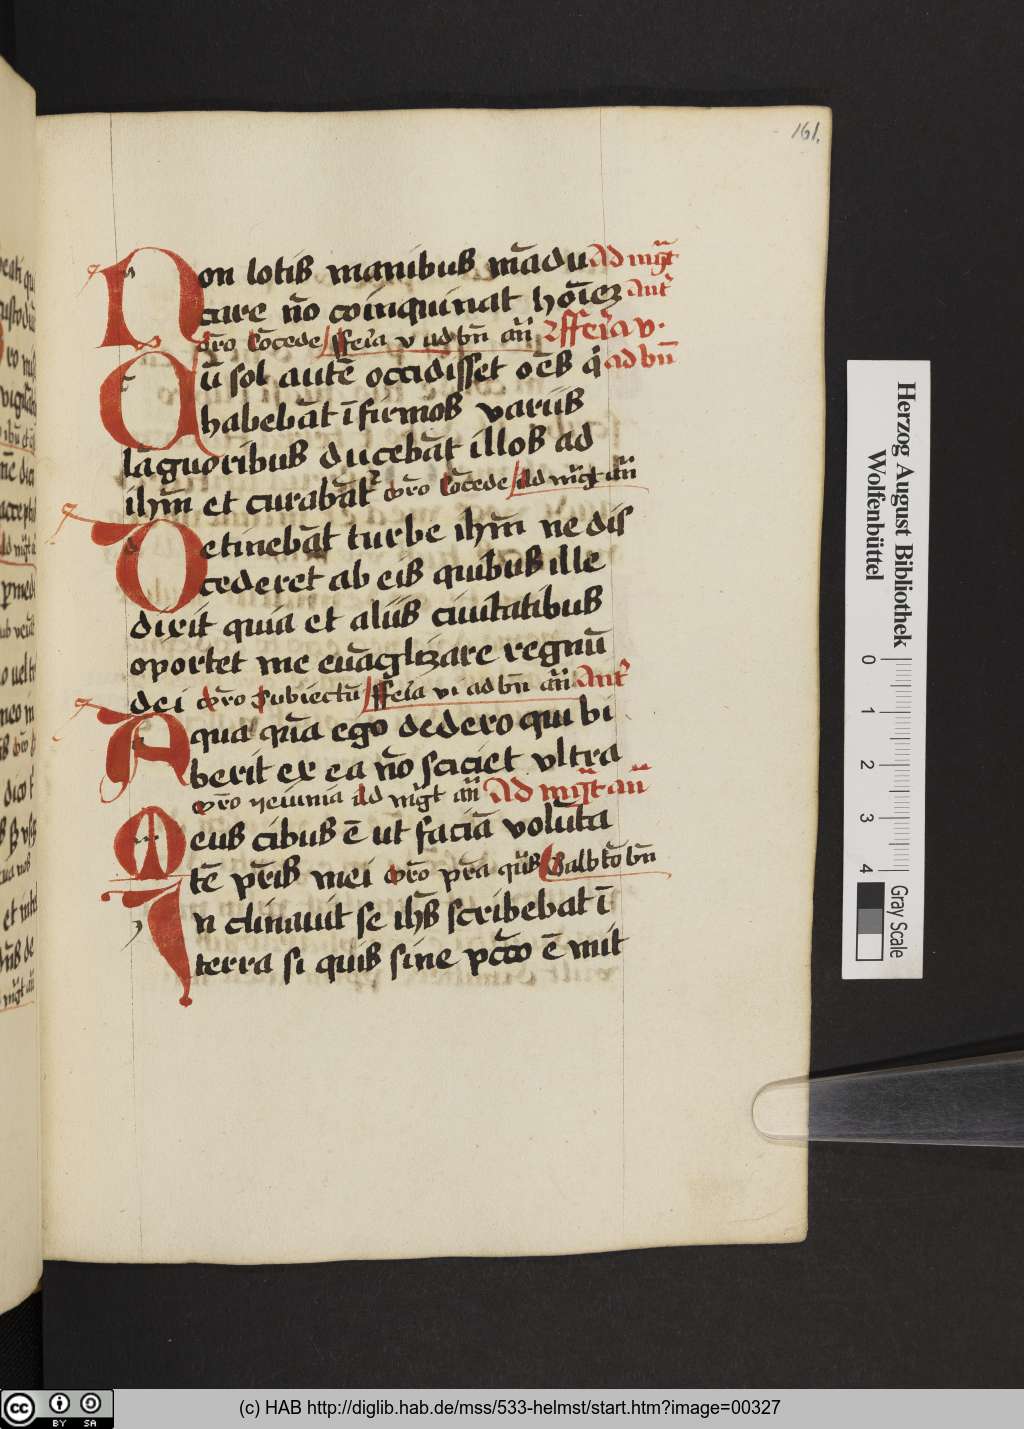 161.
Non lotis manibus mādu Ad mgt̄
care nō coinquinat hoīez ant̄
orō Cōcede fferia v ad bn̄ an̄ fferia v.
Cū sol autē occidisset oēs q̇ ad bn̄
habebāt īfirmos variis
lāguoribus ducebāt illos ad
ihm̄ et curabāt orō Cōcede Ad mgt̄ an̄
Detinebāt turbe ihm̄ ne dis
cederet ab eis quibus ille
dixit quia et aliis ciuitatibus
oportet me euāglizare regnū
dei orō Subiectū fferia vi ad bn̄ an̄ Ant̄
Aqua quā ego dedero qui bi
berit ex ea nō sciciet vltra
orō ieiunia Ad mgt̄ an̄ Ad mgt̄ an̄
Meus cibus ē ut faciā volūta
tē pr̄is mei orō pr̄a qs̄ Sabbto bn̄
In clinauit se ihs̄ scribebat ī
terra si quis sine pcc̄o ē mit
Herzog August Bibliothek
Wolfenbüttel
0 1 2 3 4
Gray Scale
cc BY SA
(c) HAB http://diglib.hab.de/mss/533-helmst/start.htm?image=00327